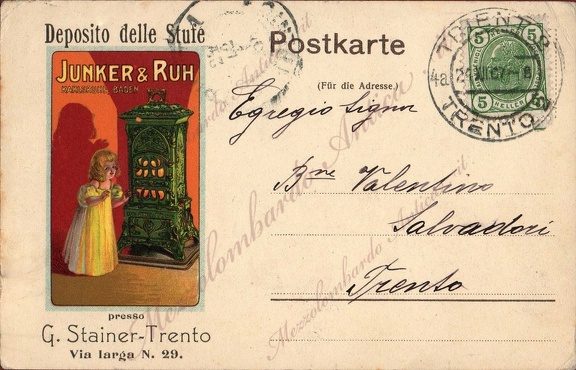 Deposito delle Stufe
JUNKER & RUH
KARLSRUHE, BADEN
presso
G. Stainer-Trento
Via larga N. 29.
Postkarte
(Für die Adresse.)
Egregio Signor
Bne Valentino
Salvadori
Trento
TRIENT
4a
TRENTO
5 5
5 HELLER 5
Mezzolombardo Antica
Mezzolombardo Antica